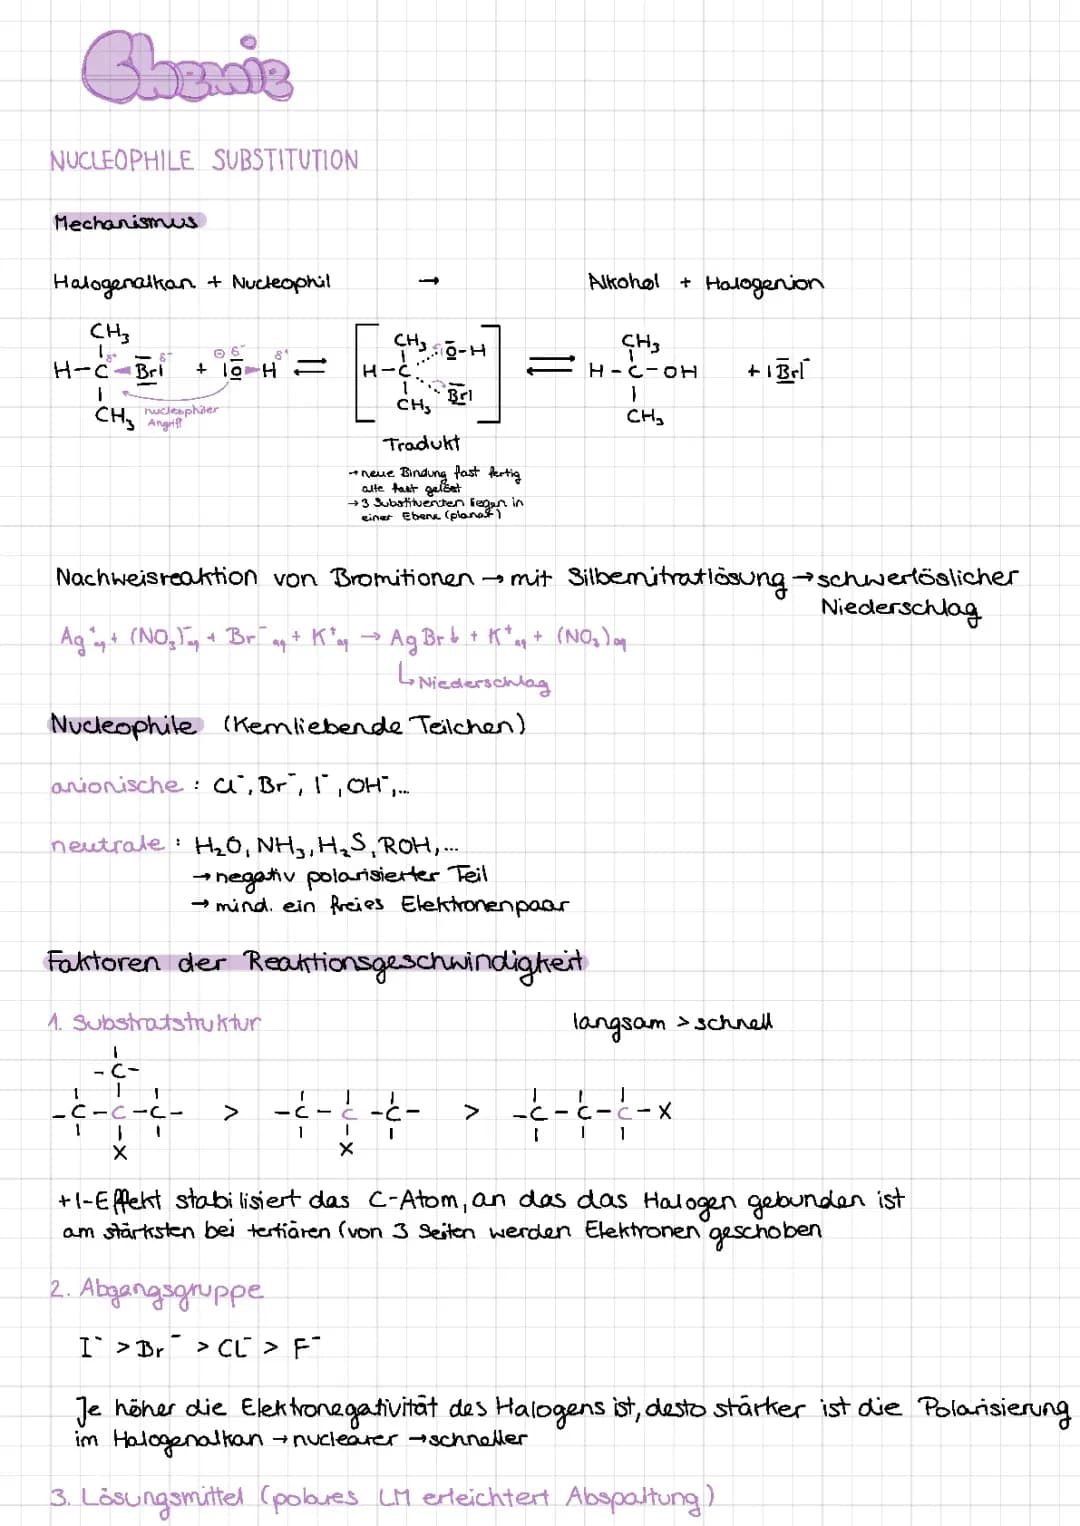 Chemie
NUCLEOPHILE SUBSTITUTION
Mechanismus
Halogenalkan + Nucleophil → Alkohol + Halogenion
CH₃ CH₃ CH₃
H-C-Br| + |O-H ⇌ H-C O-H Br| ⇌ H-C-OH + |Br|⁻
CH₃ CH₃ CH₃
nucleophiler
Angriff
Tradukt
→ neue Bindung fast fertig
alte fast gelöst
→ 3 Substituenten liegen in
einer Ebene (planar)
Nachweisreaktion von Bromitionen → mit Silbernitratlösung → schwerlöslicher
Niederschlag
Ag⁺aq + (NO₃)⁻aq + Br⁻aq + K⁺aq → AgBr↓ + K⁺aq + (NO₃)aq
↳ Niederschlag
Nucleophile (Kernliebende Teilchen)
anionische : Cl⁻, Br⁻, I⁻, OH⁻,...
neutrale : H₂O, NH₃, H₂S, ROH,...
→ negativ polarisierter Teil
→ mind. ein freies Elektronenpaar
Faktoren der Reaktionsgeschwindigkeit
1. Substratstruktur langsam > schnell
-C-
-C-C-C- > -C-C-C- > -C-C-C-X
X X
+I-Effekt stabilisiert das C-Atom, an das das Halogen gebunden ist
am stärksten bei tertiären (von 3 Seiten werden Elektronen geschoben
2. Abgangsgruppe
I⁻ > Br⁻ > Cl⁻ > F⁻
Je höher die Elektronegativität des Halogens ist, desto stärker ist die Polarisierung
im Halogenalkan → nuclearer → schneller
3. Lösungsmittel (polares LM erleichtert Abspaltung)